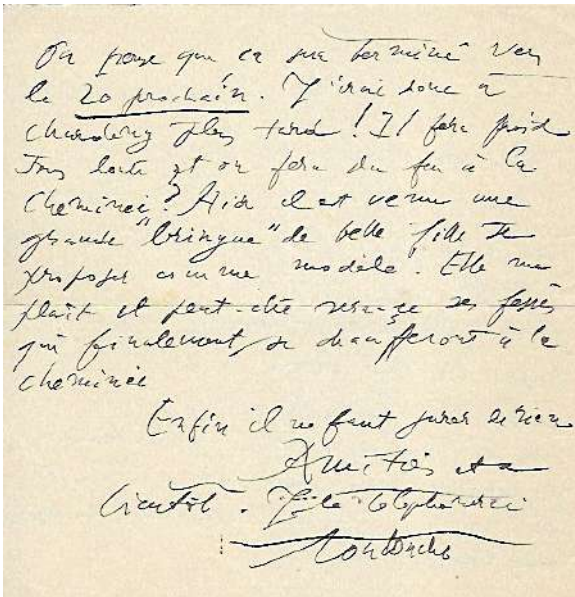 On pense que ca sera terminé vers
le 20 prochain. J'irai donc à
plus tard ! Il fera froid
sans doute et on fera du feu à la
cheminée ? Hier il est venu une
grande "bringue" de belle fille se
proposer comme modèle. Elle me
plaît et peut-être sera-ce ses fesses
qui finalement se chaufferont à la
cheminée
Enfin il ne faut jurer de rien
Amitiés et a
bientôt. Je te téléphonerai